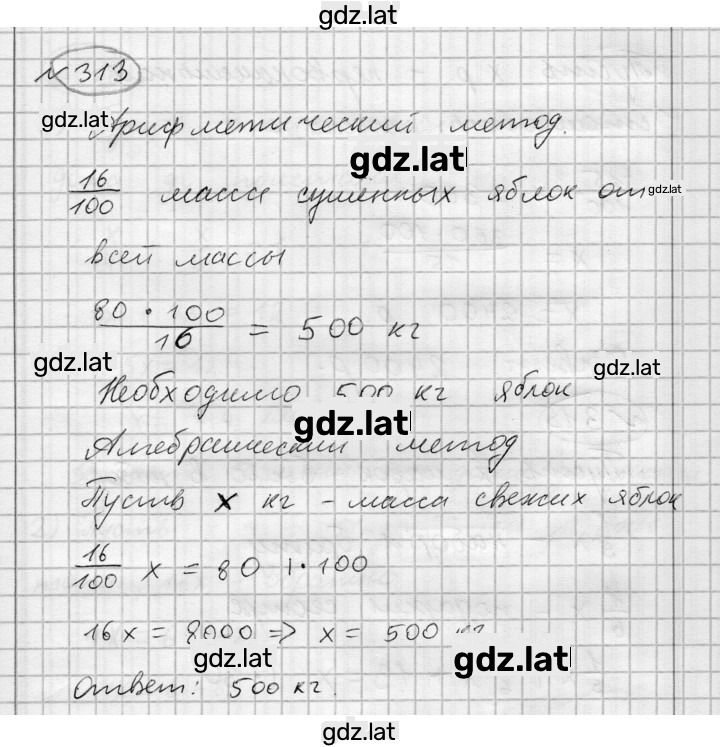 gdz.lat
№ 313
gdz.lat
Арифметический метод.
gdz.lat
16/100 масса сушённых яблок от
gdz.lat
всей массы
80 · 100 / 16 = 500 кг
gdz.lat
gdz.lat
Необходимо 500 кг яблок
gdz.lat
Алгебраический метод
Пусть x кг - масса свежих яблок
16/100 x = 80 | · 100
16x = 8000 => x = 500 кг
gdz.lat
gdz.lat
Ответ: 500 кг.
gdz.lat